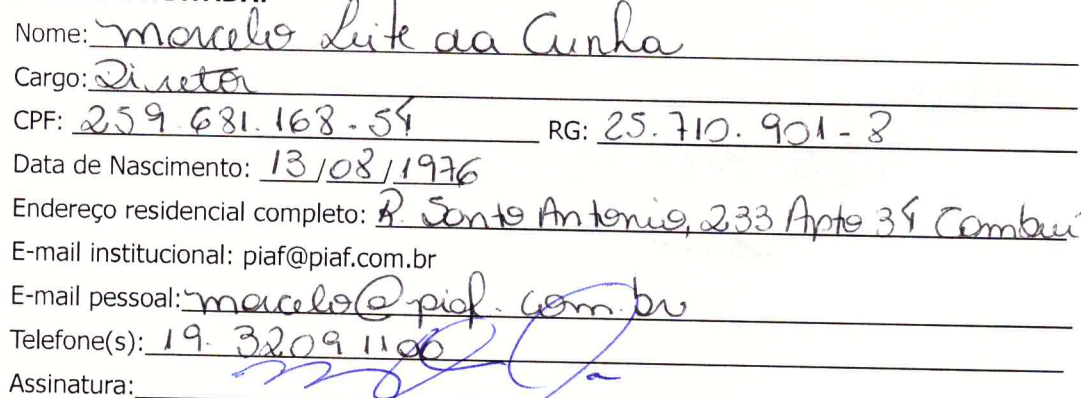 Nome: Marcelo Leite da Cunha
Cargo: Diretor
CPF: 259.681.168-54 RG: 25.710.901-8
Data de Nascimento: 13/08/1976
Endereço residencial completo: R. Santo Antonio, 233 Apto 34 Cambui
E-mail institucional: piaf@piaf.com.br
E-mail pessoal: marcelo@piaf.com.br
Telefone(s): 19. 3209 1100
Assinatura: